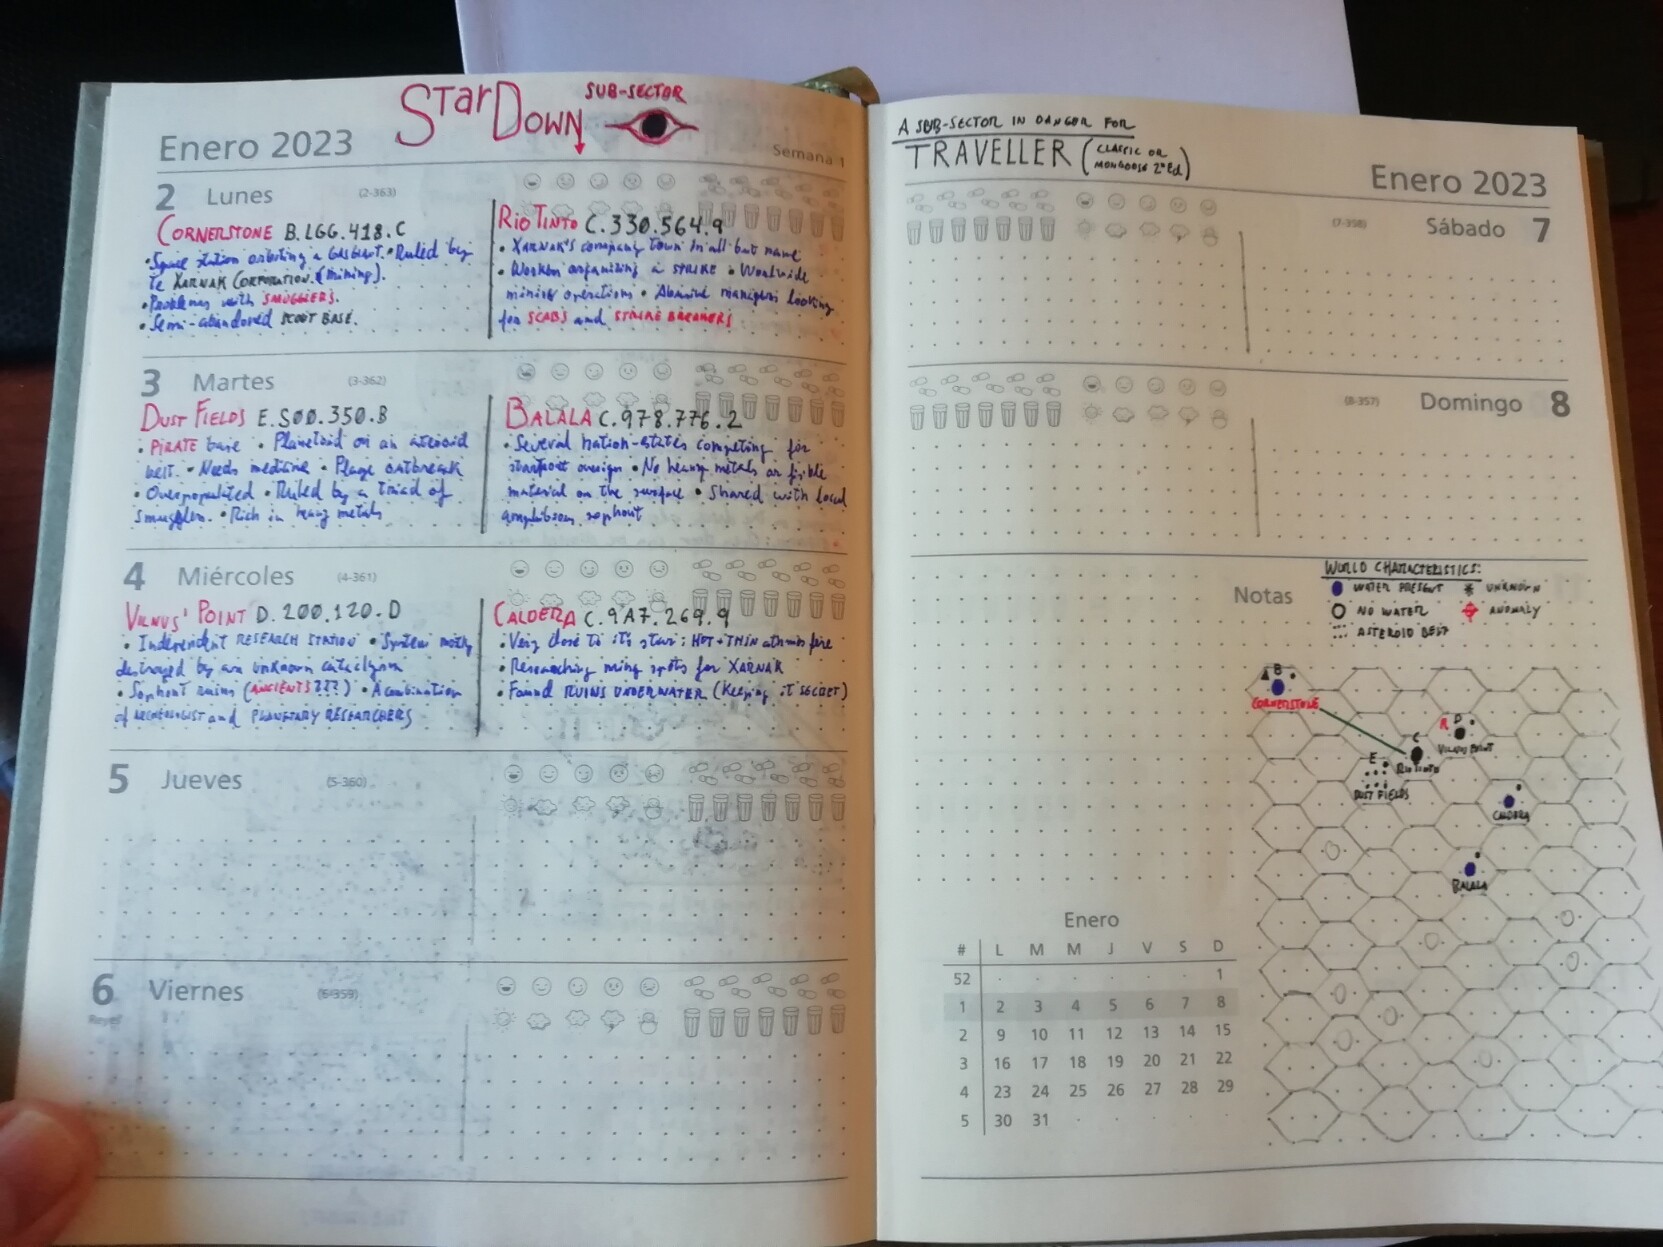 StarDown SUB-SECTOR
Enero 2023
Semana 1
2 Lunes (2-363)
CORNERSTONE B.LGG.418.C
• Space station orbiting a Gas Giant. • Ruled by
te XARNAK CORPORATION. (mining).
• Problems with SMUGGLERS.
• Semi-abandoned SCOUT BASE.
RIO TINTO C.330.564.9
• XARNAK'S company town in all but name
• Workers organizing a STRIKE • Worldwide
mining operations • Abusive managers looking
for SCABS and STRIKE BREAKERS
3 Martes (3-362)
DUST FIELDS E.S00.350.B
• PIRATE base • Planetoid on an asteroid
belt. • Needs medicine • Plage outbreak
• Overpopulated • Ruled by a triad of
smugglers. • Rich in heavy metals
BALALA C.978.776.2
• Several nation-states competing for
starport • No heavy metals or fisible
material on the surface • Shared with local
amphibious sophont
4 Miércoles (4-361)
VILNUS' POINT D.200.120.D
• Independent RESEARCH STATION • System mostly
destroyed by an unknown cataclysm
• Sophont ruins (ANCIENTS???) • A combination
of ARCHEOLOGIST and PLANETARY RESEARCHERS
CALDERA C.9A7.269.9
• Very close to it's star; HOT + THIN athmosfere
• Researching mining spots for XARNAK
• Found RUINS UNDERWATER (Keeping it SECRET)
5 Jueves (5-360)
6 Viernes (6-359)
Reyes
A SUB-SECTOR IN DANGER FOR
TRAVELLER (CLASSIC OR
MONGOOSE 2nd Ed)
Enero 2023
(7-358) Sábado 7
(8-357) Domingo 8
Notas
WORLD CHARACTERISTICS:
WATER PRESENT * UNKNOWN
NO WATER ANOMALY
ASTEROID BELT
B
CORNERSTONE
R D
VILNUS POINT
C
RIO TINTO
E
DUST FIELDS
CALDERA
BALALA
Enero
# L M M J V S D
52 · · · · · · 1
1 2 3 4 5 6 7 8
2 9 10 11 12 13 14 15
3 16 17 18 19 20 21 22
4 23 24 25 26 27 28 29
5 30 31 · · · · ·